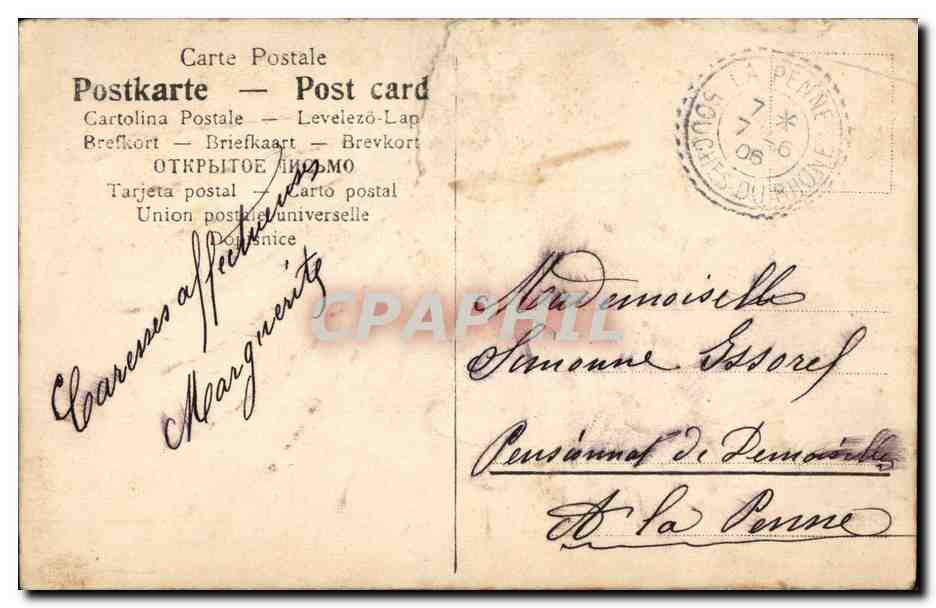 Carte Postale
Postkarte — Post card
Cartolina Postale — Levelező-Lap
Brefkort — Briefkaart — Brevkort
ОТКРЫТОЕ ПИСЬМО
Tarjeta postal — Carto postal
Union postale universelle
Dopisnice
Caresses affectueuses
Marguerite
LA PENNE
7 *
7 -6
06
BOUCHES-DU-RHONE
CPAPHIL
Mademoiselle
Simonne Essorel
Pensionnat de Demoiselles
A la Penne